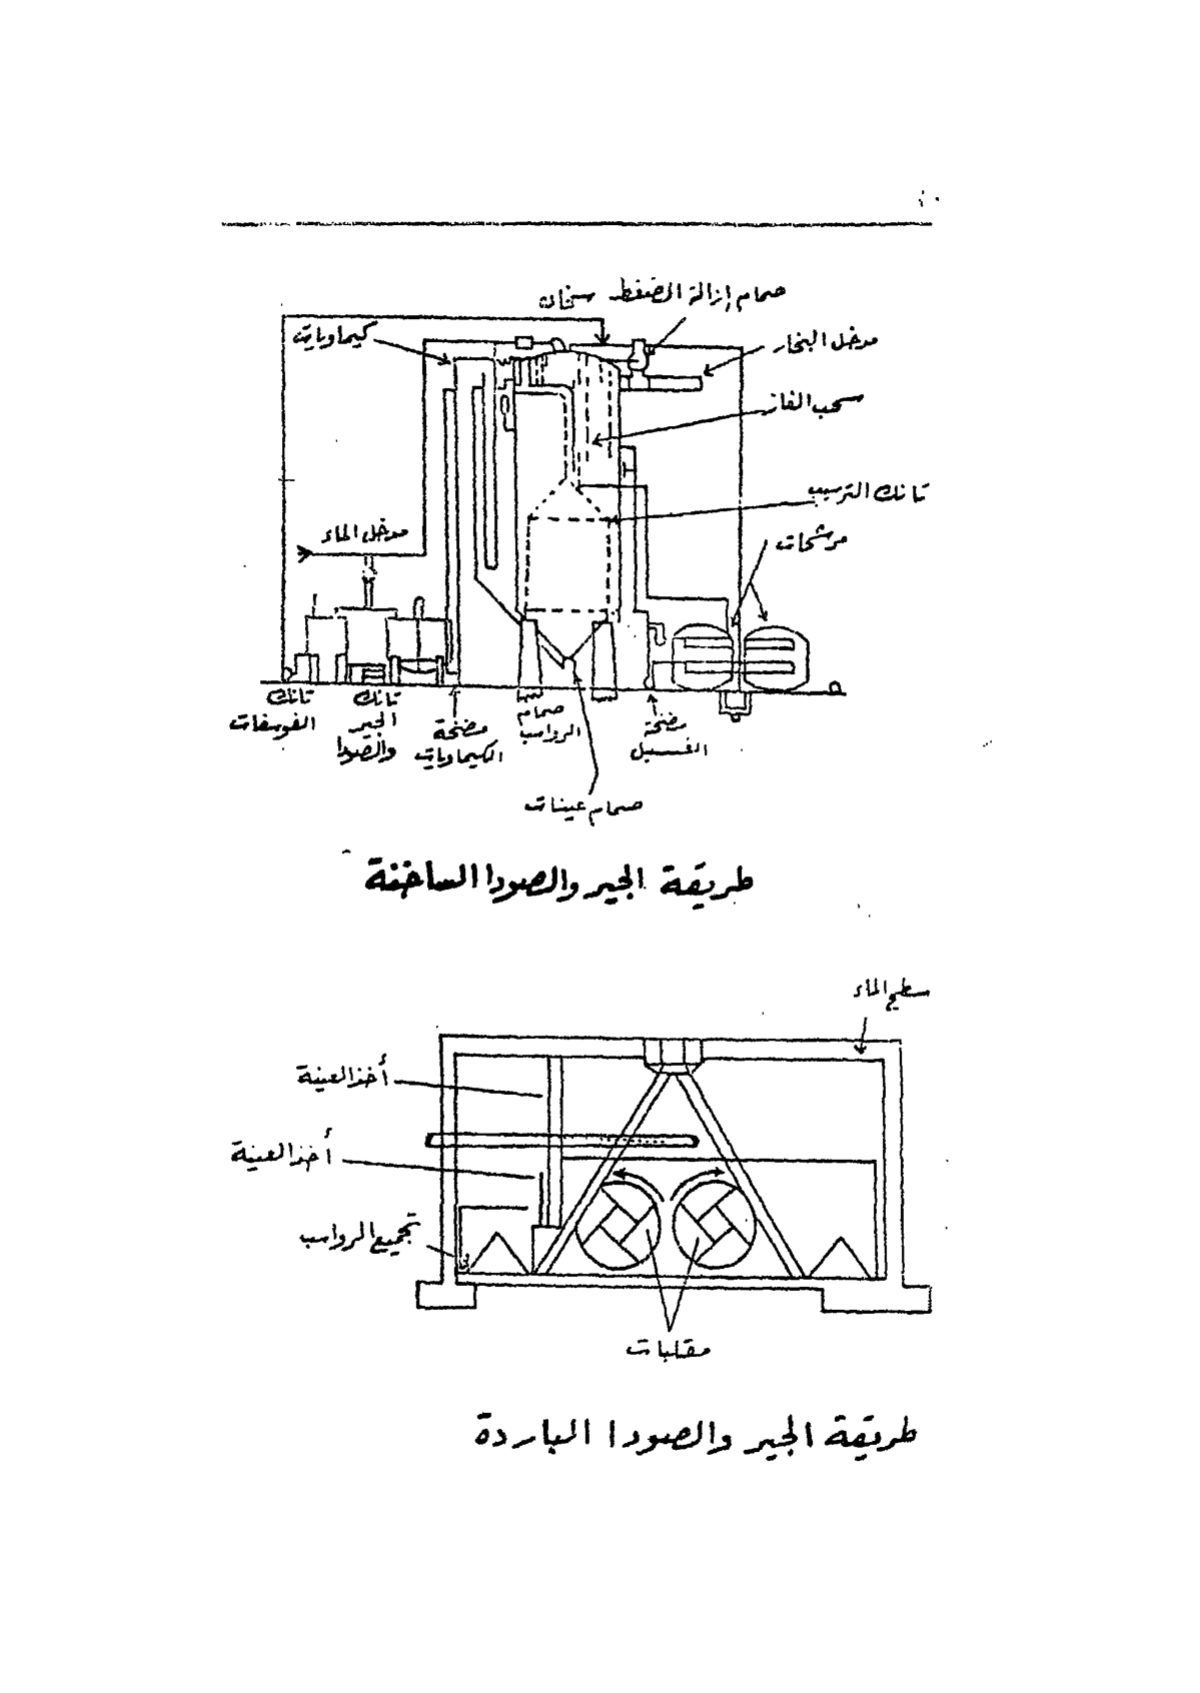 صمام إزالة الضغط سخان
كيماويات
مدخل البخار
سحب الغاز
تانك الترسيب
مدخل الماء
مرشحات
تانك
الفوسفات
تانك
الجير
والصودا
مضخة
الكيماويات
صمام
الرواسب
مضخة
الغسيل
صمام عينات
طريقة الجير والصودا الساخنة
سطح الماء
أخذ العينة
أخذ العينة
تجميع الرواسب
مقلبات
طريقة الجير والصودا الباردة